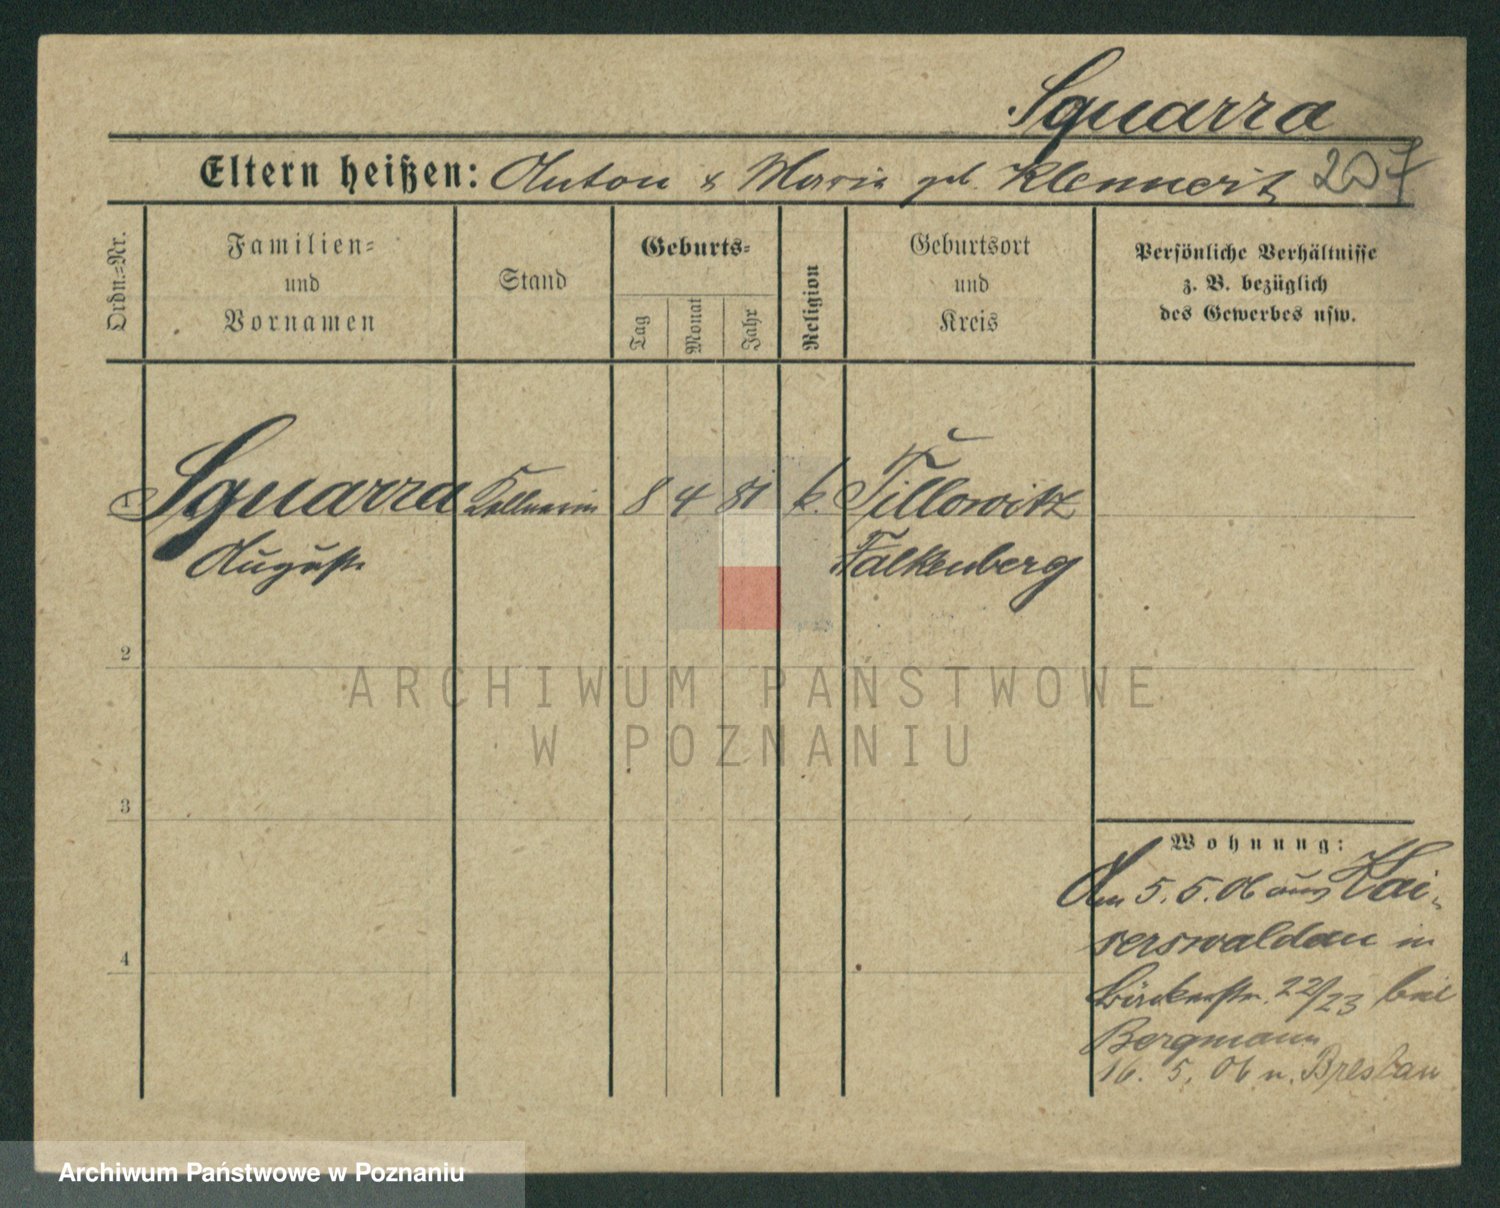 Squarra
Eltern heißen: Anton & Maria geb. Klennert 207
Ordn.=Nr.
Familien=
und
Vornamen
Stand
Geburts=
Tag
Monat
Jahr
Religion
Geburtsort
und
Kreis
Persönliche Verhältnisse
z. B. bezüglich
des Gewerbes usw.
1 Squarra Kellnerin 8 4 81 k. Tillowitz
Auguste Falkenberg
2
ARCHIWUM PAŃSTWOWE
W POZNANIU
3
Wohnung:
Am 5.5.06 aus Kai-
serswaldau in
22/23 bei
Bergmann
4
16. 5. 06 n. Breslau
Archiwum Państwowe w Poznaniu